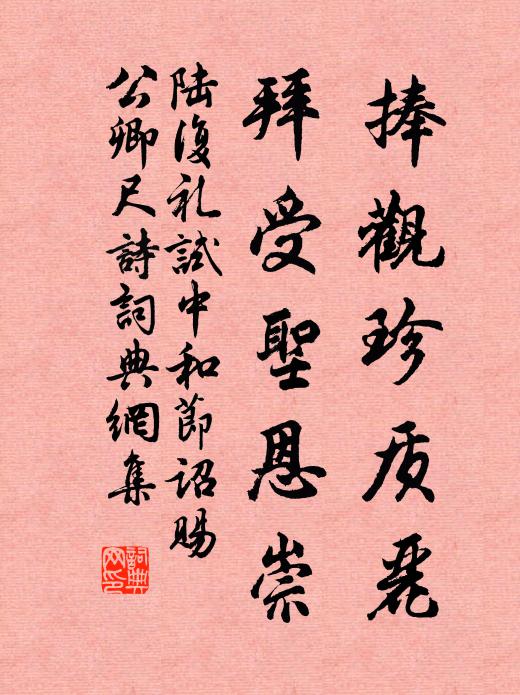 捧觀珍质麗
拜受聖恩崇
陆復礼試中和節詔賜
公卿尺詩詞典網集
詞典
网印